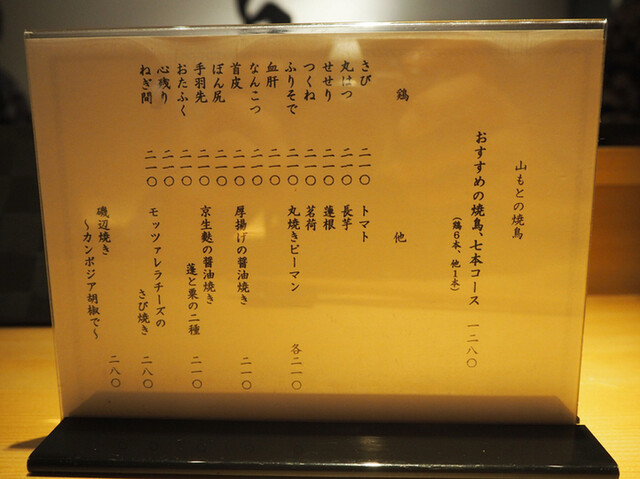 山もとの焼鳥
おすすめの焼鳥、七本コース 一二八〇
（鶏6本、他1本）
鶏
さび 二一〇
丸はつ 二一〇
せせり 二一〇
つくね 二一〇
ふりそで 二一〇
血肝 二一〇
なんこつ 二一〇
首皮 二一〇
ぼん尻 二一〇
手羽先 二一〇
おたふく 二一〇
心残り 二一〇
ねぎ間 二一〇
他
トマト
長芋
蓮根
茗荷
丸焼きピーマン 各二一〇
厚揚げの醤油焼き 二一〇
京生麩の醤油焼き
蓬と粟の二種 二一〇
モッツァレラチーズの
さび焼き 二八〇
磯辺焼き
〜カンボジア胡椒で〜 二八〇